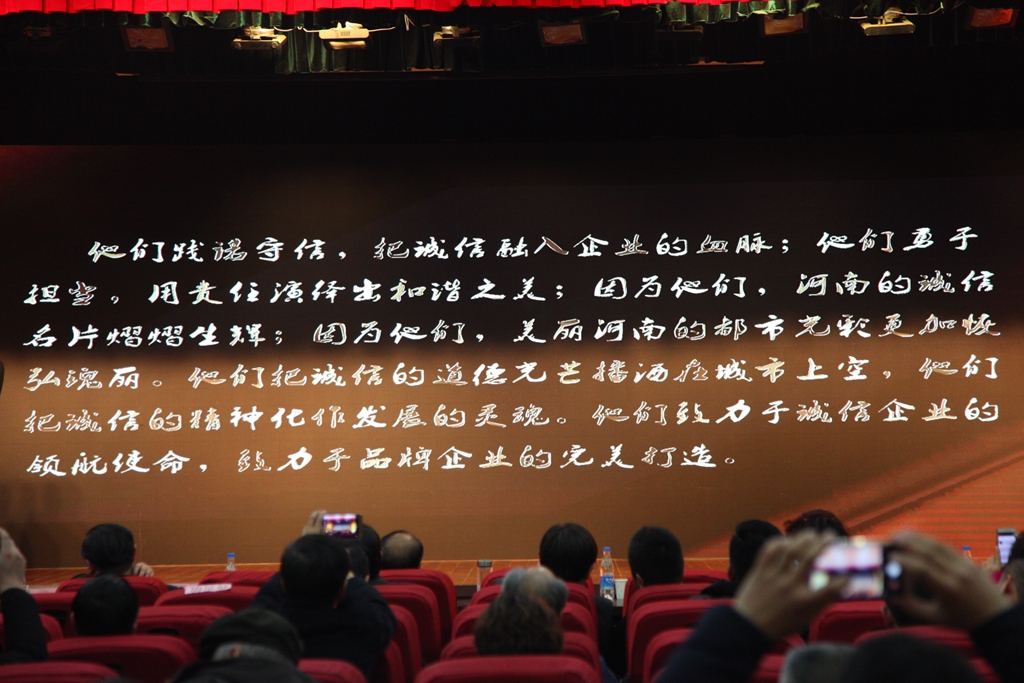 他们践诺守信，把诚信融入企业的血脉；他们勇于
担当，用责任演绎出和谐之美；因为他们，河南的诚信
名片熠熠生辉；因为他们，美丽河南的都市光彩更加恢
弘瑰丽。他们把诚信的道德光芒播洒在城市上空，他们
把诚信的精神化作发展的灵魂。他们致力于诚信企业的
领航使命，致力于品牌企业的完美打造。